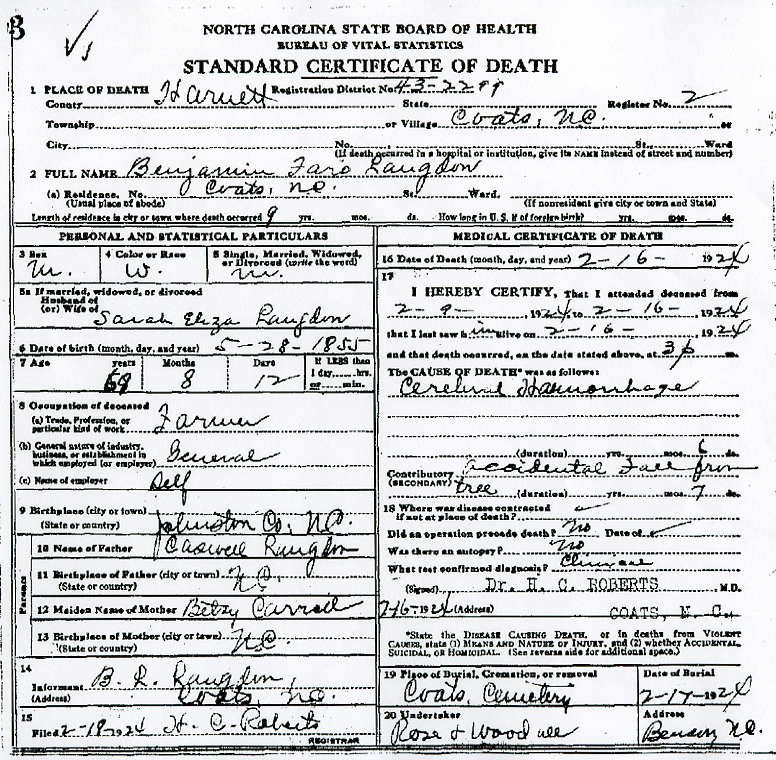 3
Vs
NORTH CAROLINA STATE BOARD OF HEALTH
BUREAU OF VITAL STATISTICS
STANDARD CERTIFICATE OF DEATH
1 PLACE OF DEATH Harnett Registration District No. 43-2299
County State Register No. 2
Township or Village Coats, N.C. or
City No. St. Ward
(If death occurred in a hospital or institution, give its NAME instead of street and number)
2 FULL NAME Benjamin Faro Langdon
(a) Residence. No. Coats, N.C. St. Ward.
(Usual place of abode) (If nonresident give city or town and State)
Length of residence in city or town where death occurred 9 yrs. mos. ds. How long in U. S. if of foreign birth? yrs. mos. ds.
PERSONAL AND STATISTICAL PARTICULARS
3 Sex 4 Color or Race 5 Single, Married, Widowed, or Divorced (write the word)
M. W. M.
5a If married, widowed, or divorced
Husband of
(or) Wife of Sarah Eliza Langdon
6 Date of birth (month, day, and year) 5-28-1855
7 Age years Months Days If LESS than
1 day, hrs.
8 12 or min.
8 Occupation of deceased
(a) Trade, Profession, or
particular kind of work Farmer
(b) General nature of industry,
business, or establishment in
which employed (or employer) General
(c) Name of employer Self
9 Birthplace (city or town)
(State or country) Johnston Co., N.C.
Parents
10 Name of Father Caswell Langdon
11 Birthplace of Father (city or town) N.C.
(State or country)
12 Maiden Name of Mother Betsy Carroll
13 Birthplace of Mother (city or town) N.C.
(State or country)
14
Informant B. L. Langdon,
(Address) Coats, N.C.
15
Filed 2-18-1924 H. C. Roberts
REGISTRAR
MEDICAL CERTIFICATE OF DEATH
16 Date of Death (month, day, and year) 2-16-1924
17
I HEREBY CERTIFY, That I attended deceased from
2-9- 1924 to 2-16- 1924
that I last saw him alive on 2-16- 1924
and that death occurred, on the date stated above, at 3 p m.
The CAUSE OF DEATH* was as follows:
Cerebral Haemorrhage
(duration) yrs. mos. 6 ds.
Contributory Accidental Fall from
(SECONDARY) tree (duration) yrs. mos. 7 ds.
18 Where was disease contracted
if not at place of death?
Did an operation precede death? No Date of
Was there an autopsy? No
What test confirmed diagnosis? Clinical
(Signed) Dr. H. C. ROBERTS M.D.
1924 (Address) COATS, N. C.
*State the DISEASE CAUSING DEATH, or in deaths from VIOLENT
CAUSES, state (1) MEANS AND NATURE OF INJURY, and (2) whether ACCIDENTAL,
SUICIDAL, OR HOMICIDAL. (See reverse side for additional space.)
19 Place of Burial, Cremation, or removal Date of Burial
Coats, Cemetery 2-17-1924
20 Undertaker Address
Rose & Woodall Benson N.C.